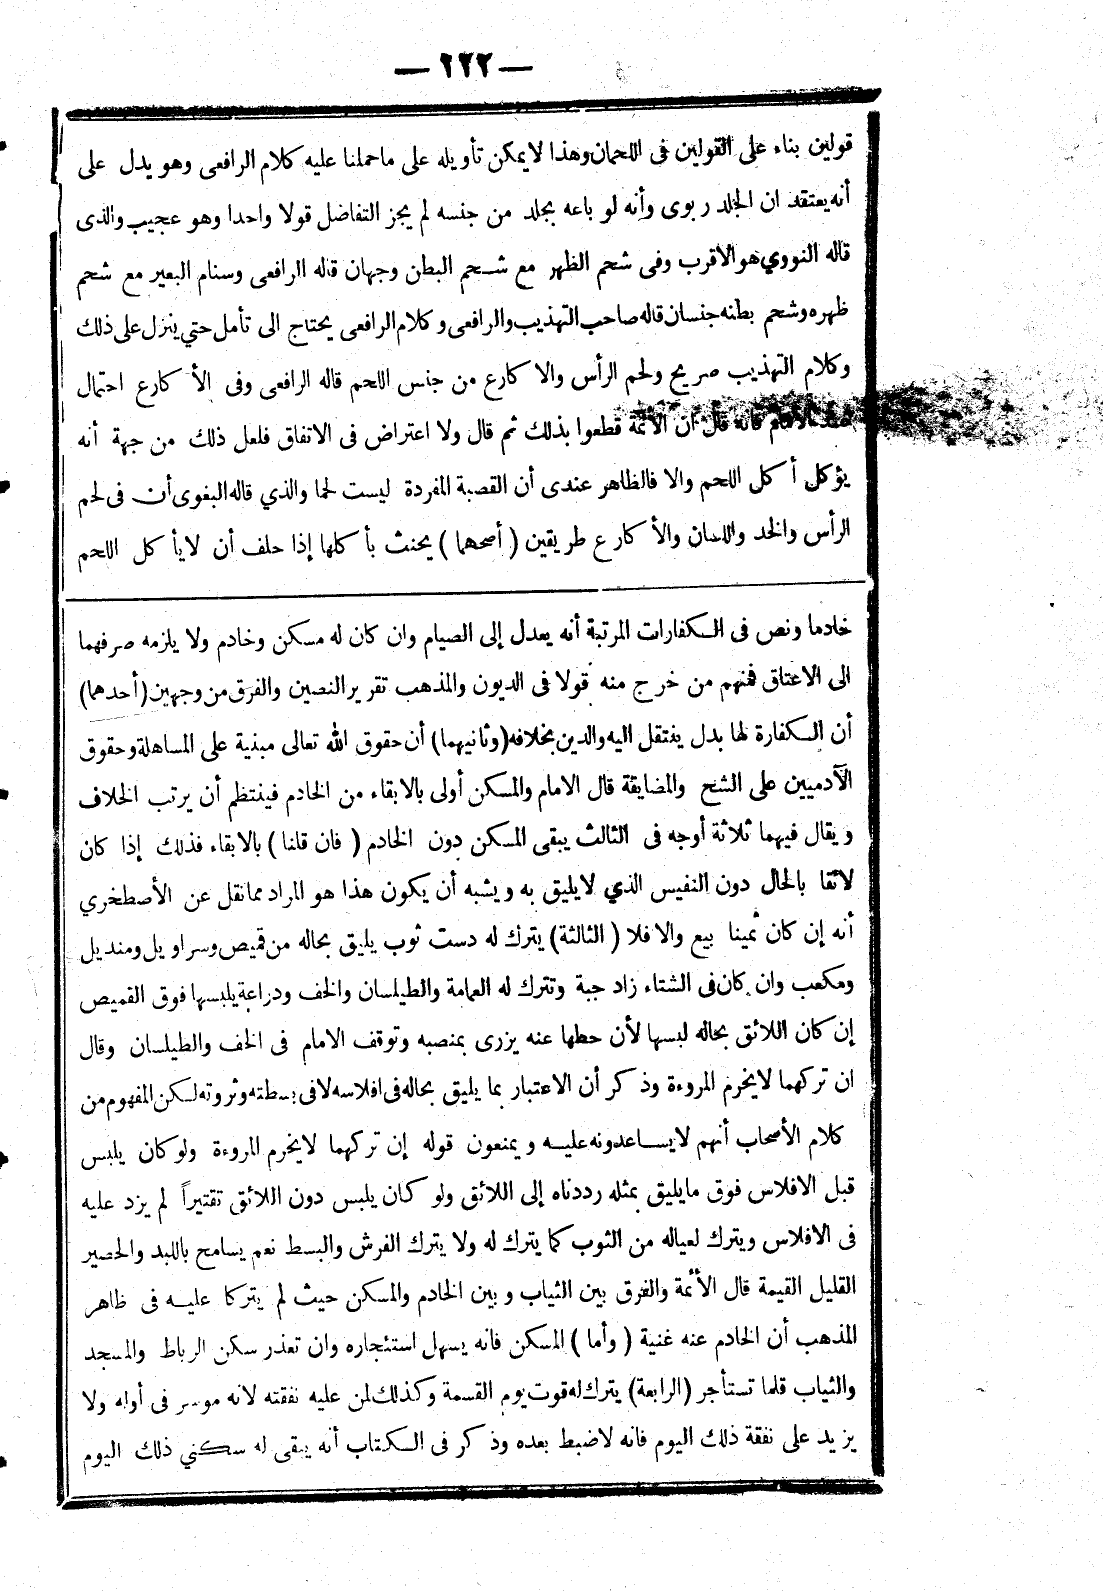 — ٢٢٢ —
قولين بناء على القولين فى اللحمان وهذا لا يمكن تأويله على ما حملنا عليه كلام الرافعى وهو يدل على
أنه يعتقد ان الجلد ربوى وأنه لو باعه بجلد من جنسه لم يجز التفاضل قولا واحدا وهو عجيب والذى
قاله النووي هو الاقرب وفى شحم الظهر مع شحم البطن وجهان قاله الرافعى وسنام البعير مع شحم
ظهره وشحم بطنه جنسان قاله صاحب التهذيب والرافعى وكلام الرافعى يحتاج الى تأمل حتي ينزل على ذلك
وكلام التهذيب صريح ولحم الرأس والاكارع من جنس اللحم قاله الرافعى وفى الأكارع احتمال
عند الامام فانه قال ان الأئمة قطعوا بذلك ثم قال ولا اعتراض فى الاتفاق فلعل ذلك من جهة أنه
يؤكل أكل اللحم والا فالظاهر عندى أن القصبة المفردة ليست لحما والذي قاله البغوى أن فى لحم
الرأس والخد واللسان والأكارع طريقين ( أصحهما ) يحنث بأكلها إذا حلف أن لا يأكل اللحم
خادما ونص فى الكفارات المرتبة أنه يعدل إلى الصيام وان كان له مسكن وخادم ولا يلزمه صرفهما
الى الاعتاق فمنهم من خرج منه قولا فى الديون والمذهب تقرير النصين والفرق من وجهين (أحدهما)
أن الكفارة لها بدل ينتقل اليه والدين بخلافه (وثانيهما) أن حقوق الله تعالى مبنية على المساهلة وحقوق
الآدميين على الشح والمضايقة قال الامام والمسكن أولى بالابقاء من الخادم فينتظم أن يرتب الخلاف
ويقال فيهما ثلاثة أوجه فى الثالث يبقى المسكن دون الخادم ( فان قلنا ) بالابقاء فذلك إذا كان
لائقا بالحال دون النفيس الذي لا يليق به ويشبه أن يكون هذا هو المراد مما نقل عن الأصطخري
أنه إن كان ثمينا بيع والا فلا ( الثالثة) يترك له دست ثوب يليق بحاله من قميص وسراويل ومنديل
ومكعب وان كان فى الشتاء زاد جبة وتترك له العمامة والطيلسان والخف ودراعة يلبسها فوق القميص
إن كان اللائق بحاله لبسها لأن حطها عنه يزرى بمنصبه وتوقف الامام فى الخف والطيلسان وقال
ان تركهما لا يخرم المروءة وذكر أن الاعتبار بما يليق بحاله فى افلاسه لا فى بسطته وثروته لكن المفهوم من
كلام الأصحاب أنهم لا يساعدونه عليه ويمنعون قوله إن تركهما لا يخرم المروءة ولو كان يلبس
قبل الافلاس فوق ما يليق بمثله رددناه إلى اللائق ولو كان يلبس دون اللائق تقتيراً لم يزد عليه
فى الافلاس ويترك لعياله من الثوب كما يترك له ولا يترك الفرش والبسط نعم يسامح باللبد والحصير
القليل القيمة قال الأئمة والفرق بين الثياب وبين الخادم والمسكن حيث لم يتركا عليه فى ظاهر
المذهب أن الخادم عنه غنية ( وأما ) المسكن فانه يسهل استئجاره وان تعذر سكن الرباط والمسجد
والثياب قلما تستأجر (الرابعة) يترك له قوت يوم القسمة وكذلك لمن عليه نفقته لانه موسر فى أوله ولا
يزيد على نفقة ذلك اليوم فانه لا ضبط بعده وذكر فى الكتاب أنه يبقى له سكني ذلك اليوم